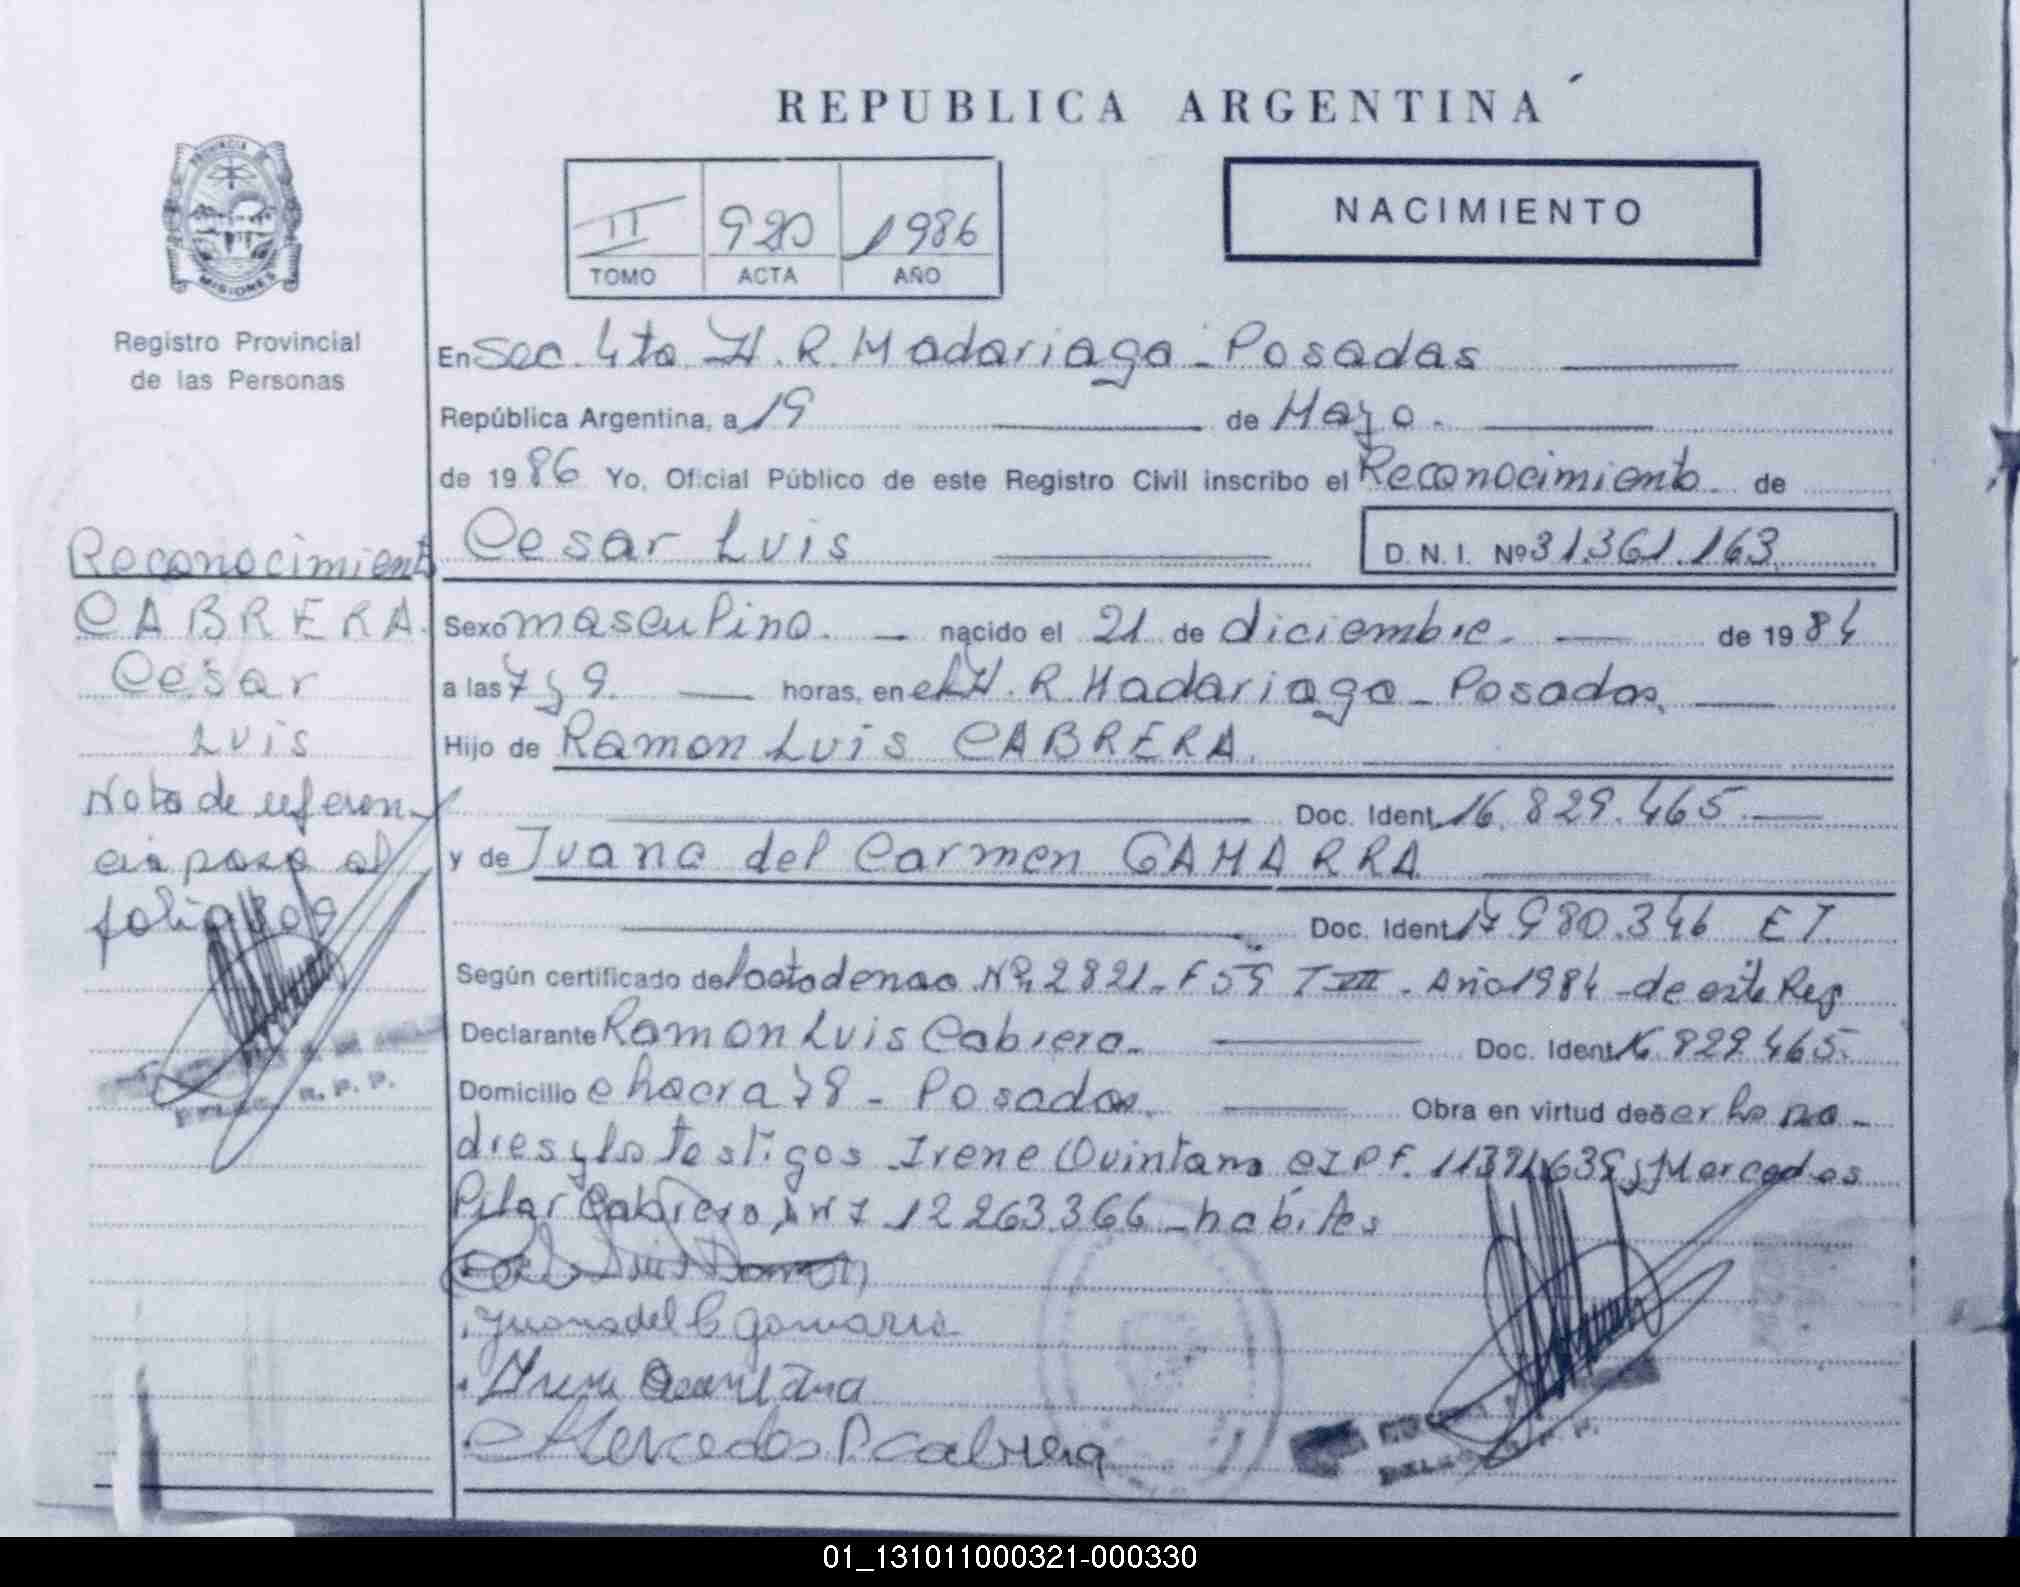 REPUBLICA ARGENTINA
PROVINCIA DE
MISIONES
Registro Provincial
de las Personas
II 920 1986
TOMO ACTA AÑO
NACIMIENTO
En Sec. 4ta H. R. Madariaga - Posadas
República Argentina, a 19 de Mayo.
de 1986 Yo, Oficial Público de este Registro Civil inscribo el Reconocimiento de
Cesar Luis D. N. I. Nº 31.361.163
Sexo masculino. nacido el 21 de diciembre. de 1984
a las 7 y 9. horas, en el H. R. Madariaga - Posadas,
Hijo de Ramon Luis CABRERA.
Doc. Ident. 16.829.465
y de Juana del Carmen GAMARRA
Doc. Ident. 17.980.346
Según certificado del acta de nac. Nº 2821 - F 59 T VII - Año 1984 - de este Reg
Declarante Ramon Luis Cabrera. Doc. Ident. 16.829.465
Domicilio chacra 78 - Posadas. Obra en virtud de ser los pa-
dres y los testigos Irene Quintana y Mercedes
Pilar Cabrera, 12.263.366 - habiles
Juana del C Gamarra
Irene Quintana
Mercedes P. Cabrera
Reconocimiento
CABRERA.
Cesar
Luis
Nota de referen-
cia pasa al
folio
R. P. P.
01_131011000321-000330